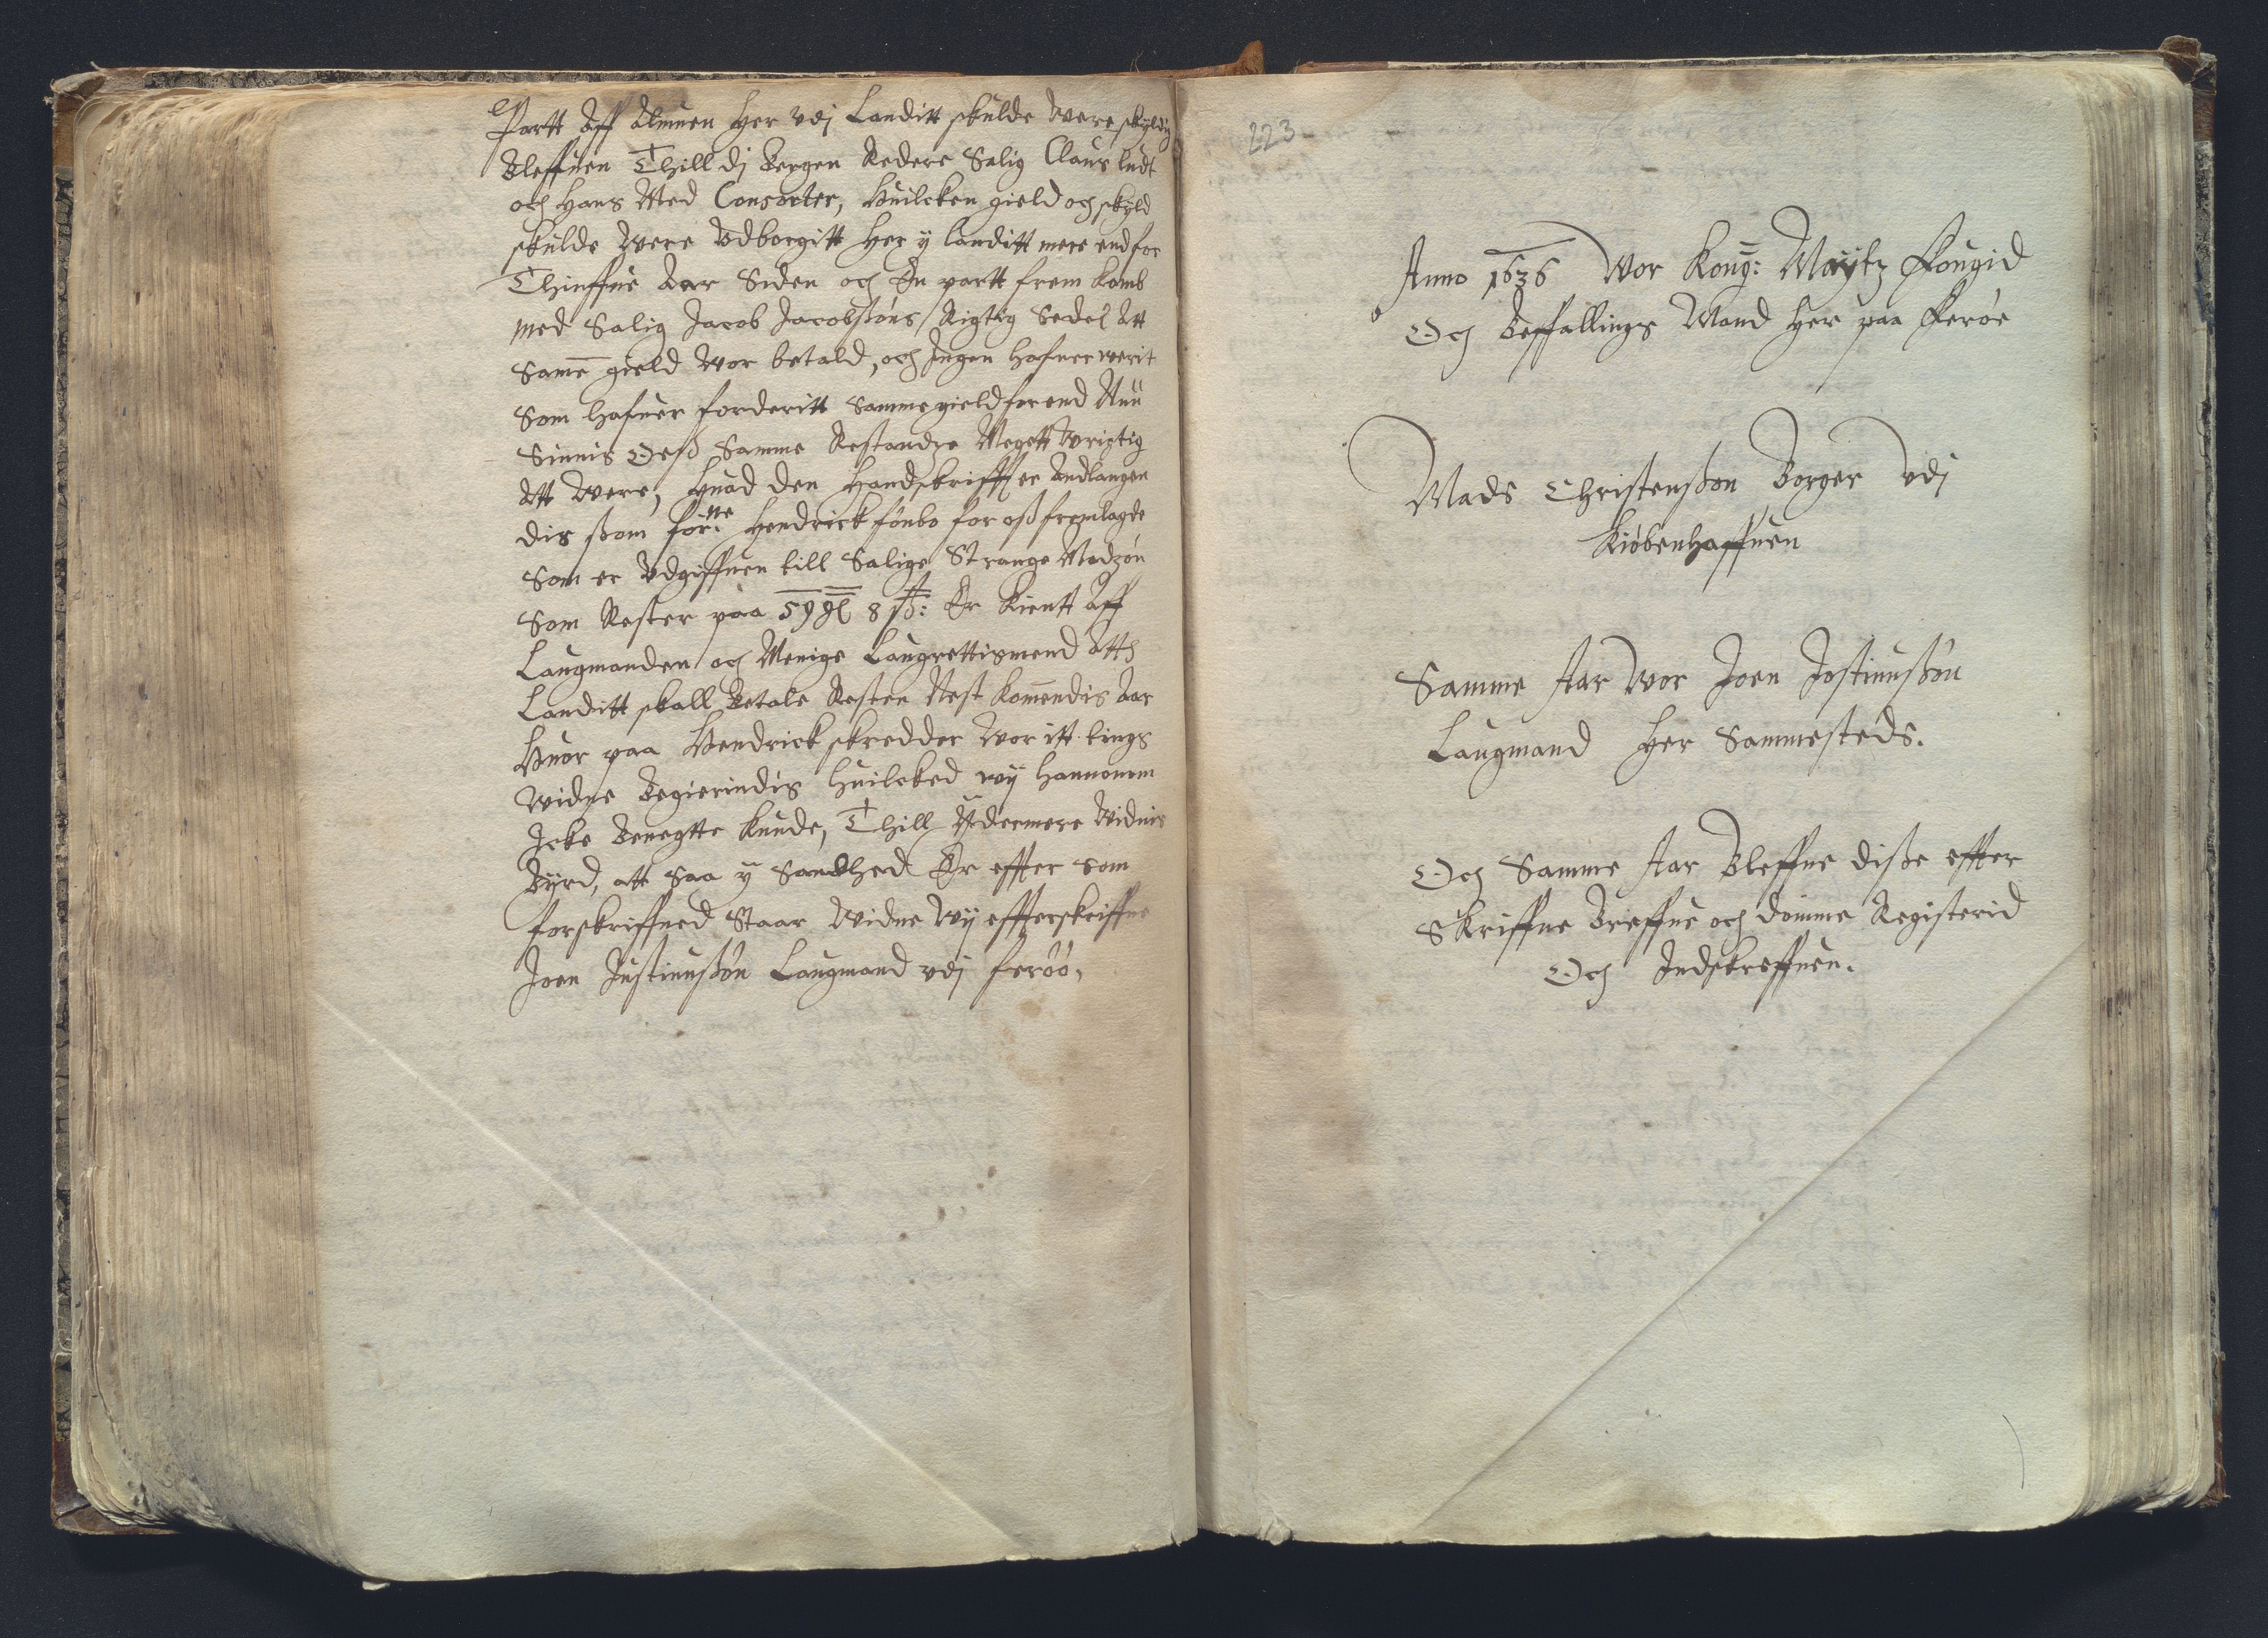 Partt Aff Almuen her vdj Landitt skulde Were skyldig
Bleffuen Thill dj Bergen Redere Salig Claus ludt
och Hans Med Consorter, Huilcken gield och skyld
skulde Were Vdborgitt her y landitt mere end for
Thiuffue Aar Siden och En partt frem komb
med Salig Jacob Jacobssøns Rigtig Sedel Att
Samē gield Wor betald, och Jngen hafuer werit
Som hafuer forderitt Samme gield for end Nuu
Sinnis Oess Samme Restandze Megett Wrictig
Att Were, Huad den Handskrifft er Andlangen
dis ssom forne: Hendrick fønbo for oss fremlagde
Som er Vdgiffuen till Salige Strange Madzøn
Som Rester paa 59 gl 8 sk: Er Kientt Aff
Laugmanden och Menige Laugrettismend Atth
Landitt skall Betale Resten Nest Komēndis Aar
Huor paa Hendrick skredder Wor itt tings
widne Begierindis huilcked wij hannonom
Jcke Benegtte Kunde, Thill Ydermere Widnis
Byrd, att saa y Sandhed Er effter som
forskriffued Staar Widne Wij effterskriffne
Joen Justinussøn Laugmand vdj ferøø,
223
Anno 1636 Wor Kong: Maytz Fougid
Och Beffallings Mand her paa Ferøe
Mads Christenssøn Borger vdj
Kiøbenhaffuen
Samme Aar Wor Joen Jostinussøn
Laugmand her Sammesteds.
Och Samme Aar Bleffue disse effter
Skriffne Breffue och domme Registerid
Och Indskreffuen.